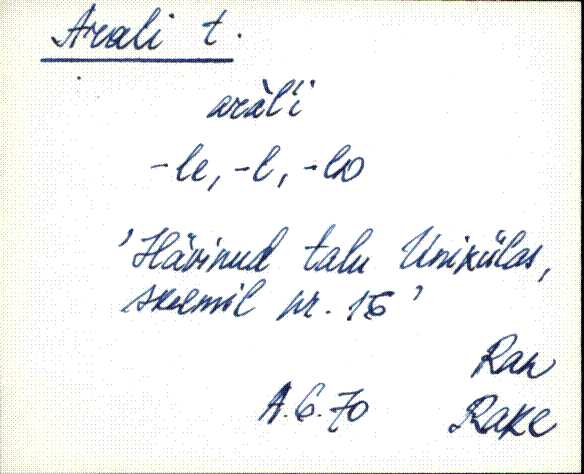 Arali t.
aràĺi
-le, -l, -lo
'Hävinud talu Unikülas,
skeemil nr. 15'
Ran
A.G.70 Rake